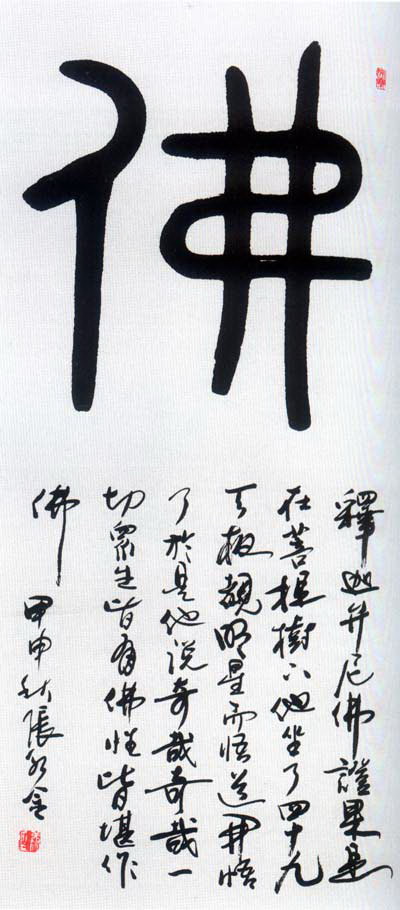 佛
釋迦牟尼佛證果是
在菩提樹下他坐了四十九
天夜覩明星而悟道开悟
了於是他说奇哉奇哉一
切眾生皆有佛性皆堪作
佛
甲申秋張